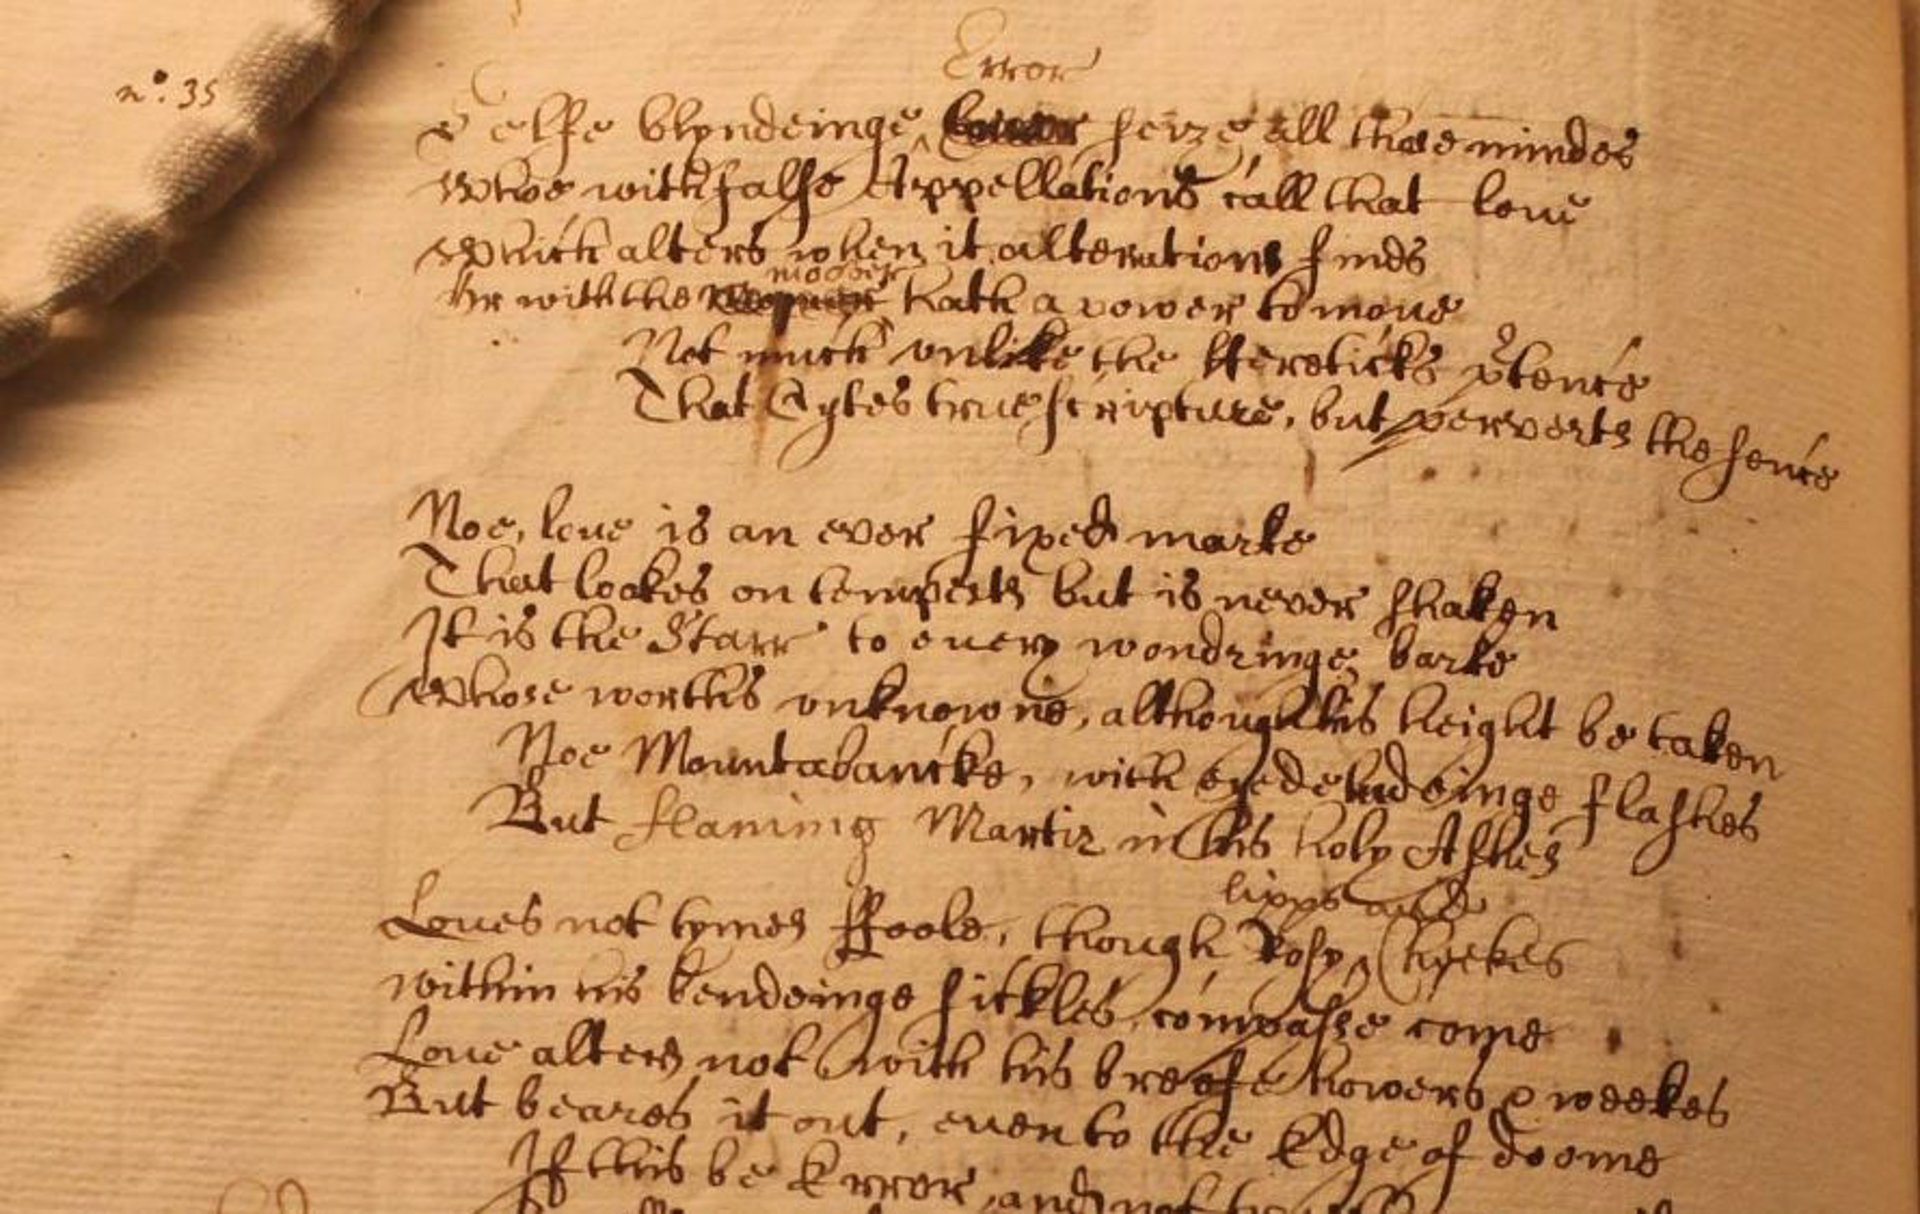 Error
n°. 35
Selfe blyndeinge seize all those mindes
Whoe with false Appellations call that loue
Which alters when it alterations finds
moover
Or with the hath a power to moue
Not much vnlike the Hereticks p̲tence
That Cytes true scripture, but perverts the sence
Noe, loue is an ever fixed marke
That lookes on tempests but is never shaken
It is the Starr to euery wondringe barke
Whose worths vnknowne, although his height be taken
Noe Mountabancke, with eyedeludeinge flashes
But flaming Martir in his holy Ashes
lipps and
Loues not tymes ffoole, though Rosy Cheekes
within his bendeinge sickles compasse come
Loue alters not with his breefe howers & weekes
But beares it out, euen to the Edge of doome
If this be Error and not